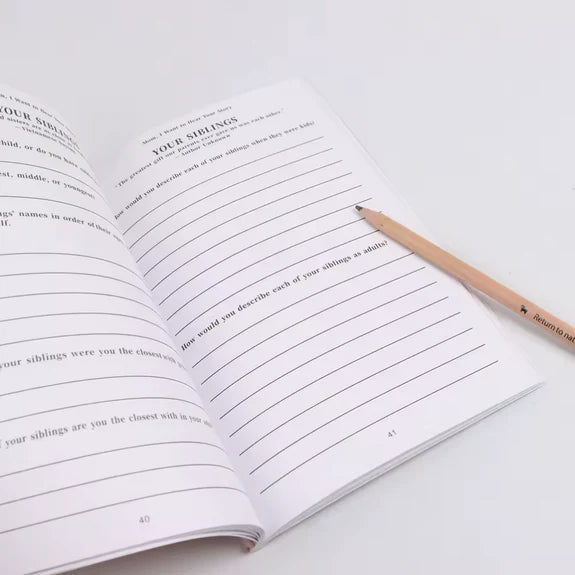 , I Want to Hear Your
YOUR SIBLINGS
sisters are as close as
child, or do you have
est, middle, or youngest?
ngs' names in order of their
lf.
your siblings were you the closest with
your siblings are you the closest with in your
40
Mom, I Want to Hear Your Story
YOUR SIBLINGS
"The greatest gift our parents ever gave us was each other."
Author Unknown
How would you describe each of your siblings when they were kids?
How would you describe each of your siblings as adults?
41
Return to nat